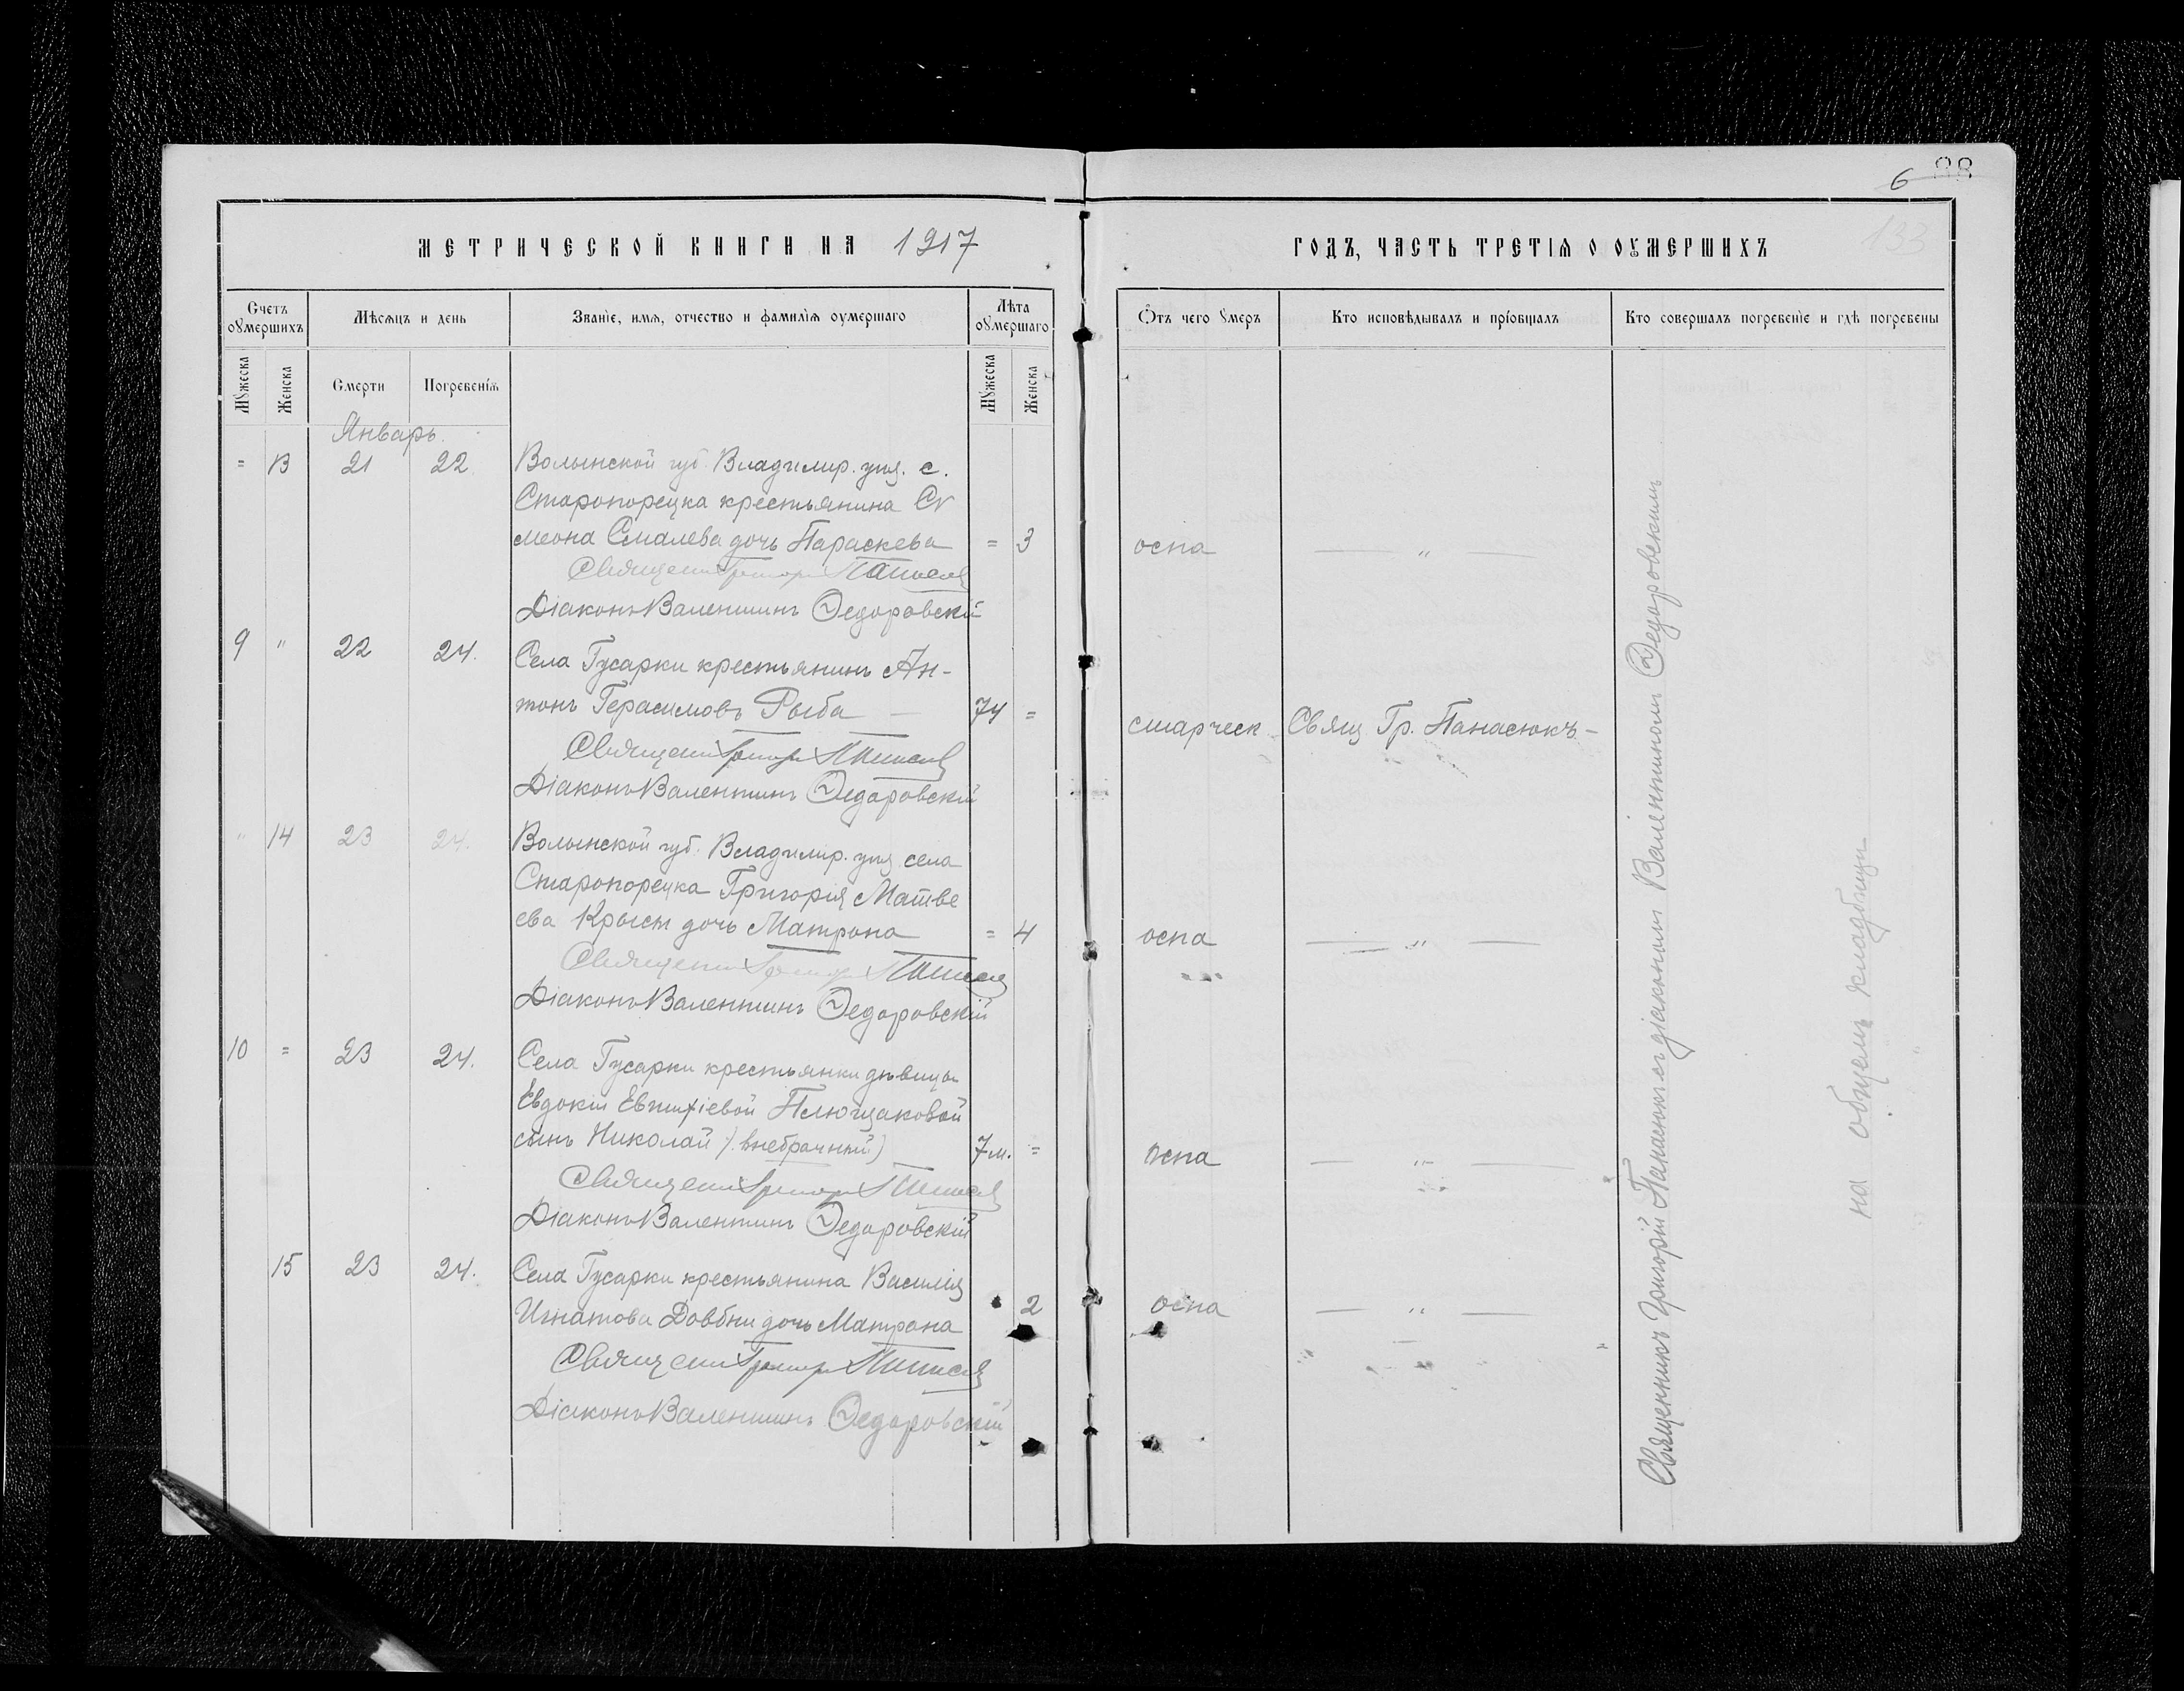 6 88
133
МЕТРИЧЕСКОЙ КНИГИ НА 1917
ГОДЪ, ЧАСТЬ ТРЕТІѦ О ОУМЕРШИХЪ
Счетъ оумершихъ
Мѣсѧцъ и день
Званіе, имѧ, отчество и фамиліѧ оумершаго
Лѣта оумершаго
Ѿтъ чего умеръ
Кто исповѣдывалъ и пріобщалъ
Кто совершалъ погребеніе и гдѣ погребены
Мужеска
Женска
Смерти
Погребеніѧ
Мужеска
Женска
Январь.
= 13 21 22. Волынской губ. Владимир. уѣз. с.
Старопорецка крестьянина Си
меона Смалева дочь Параскева = 3 оспа — " —
Священникъ Григорій Панасюкъ
Діаконъ Валентинъ Ѳедоровскій
9 " 22 24. Села Гусарки крестьянинъ Ан-
тонъ Герасимовъ Рыба — 74 = старческ. Свящ. Гр. Панасюкъ -
Священникъ Григорій Панасюкъ
Діаконъ Валентинъ Ѳедоровскій
" 14 23 24. Волынской губ. Владимир. уѣз. села
Старопорецка Григорія Матве
ева Крысы дочь Матрона = 4 оспа — " —
Священникъ Григорій Панасюкъ
Діаконъ Валентинъ Ѳедоровскій
10 = 23 24. Села Гусарки крестьянки дѣвицы
Евдокіи Евтихіевой Плющаковой
сынъ Николай (внебрачный) 7 м. = оспа — " —
Священникъ Григорій Панасюкъ
Діаконъ Валентинъ Ѳедоровскій
15 23 24. Села Гусарки крестьянина Василія
Игнатова Довбни дочь Матрона 2 оспа — " —
Священникъ Григорій Панасюкъ
Діаконъ Валентинъ Ѳедоровскій
Священникъ Григорій Панасюкъ діакономъ Валентиномъ Ѳедоровскимъ
на общемъ кладбищѣ